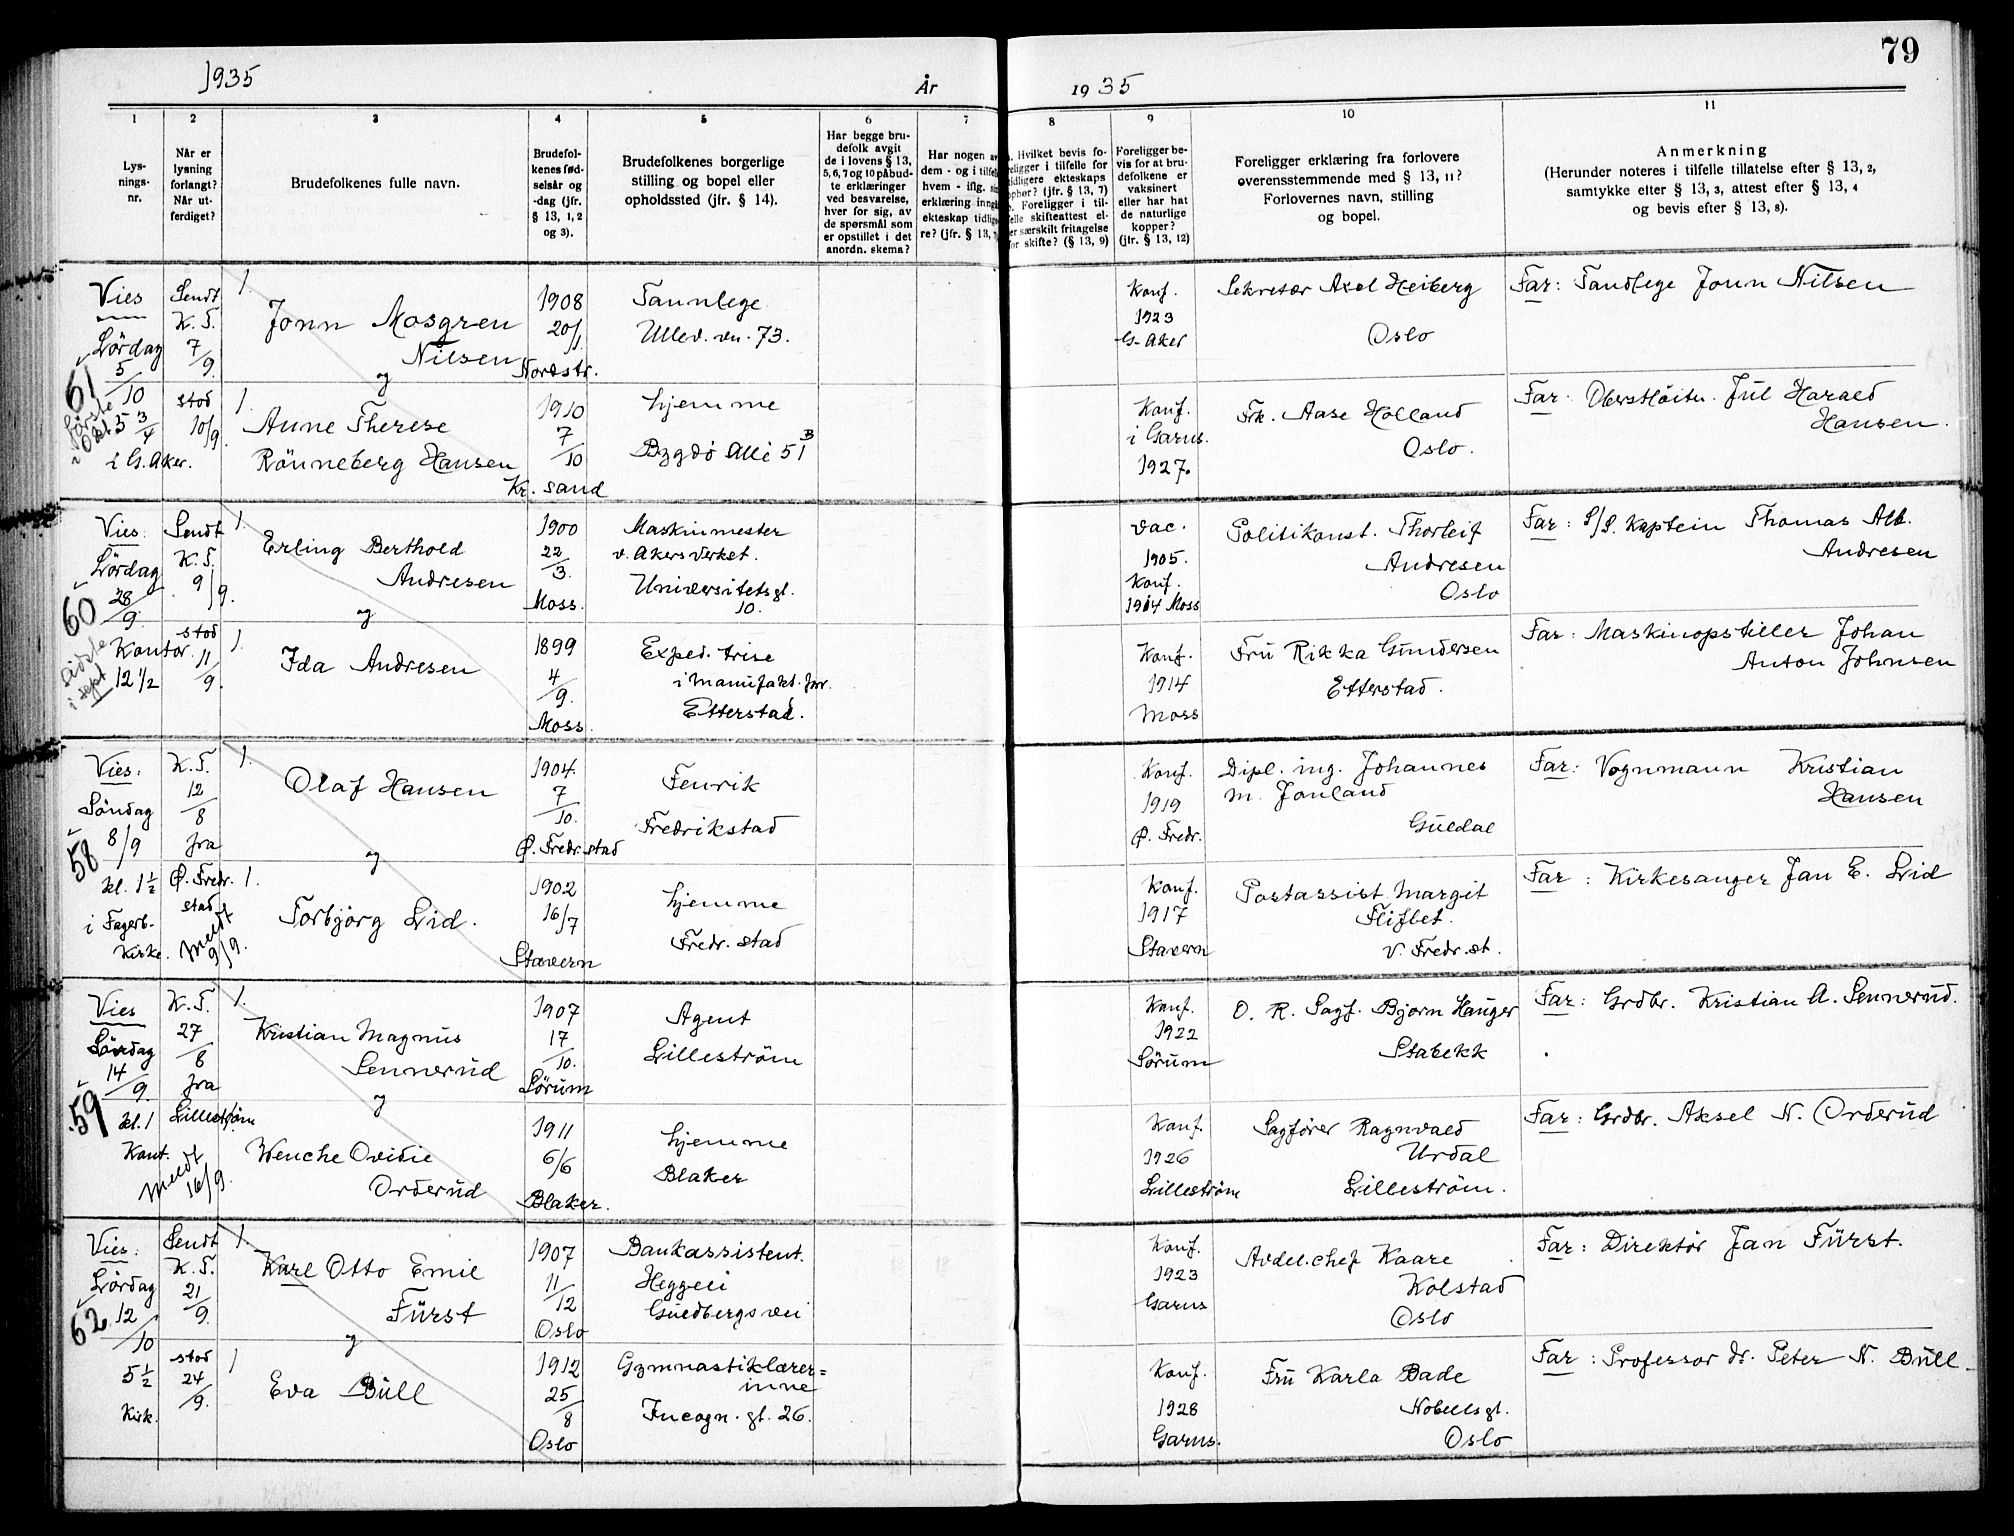 79
1935
År
1935
1
Lys-
nings-
nr.
2
Når er
lysning
forlangt?
Når ut-
ferdiget?
3
Brudefolkenes fulle navn.
4
Brudefol-
kenes fød-
selsår og
-dag (jfr.
§ 13, 1, 2
og 3).
5
Brudefolkenes borgerlige
stilling og bopel eller
opholdssted (jfr. § 14).
6
Har begge bru-
defolk avgit
de i lovens § 13,
5, 6, 7 og 10 påbud-
te erklæringer
ved besvarelse,
hver for sig, av
de spørsmål som
er opstillet i det
anordn. skema?
7
Har nogen av
dem - og i tilfelle
hvem - iflg. sin
erklæring inngått
ekteskap tidlige-
re? (jfr. § 13,
8
Hvilket bevis fo-
religger i tilfelle for
tidligere ekteskaps
ophør? (jfr. § 13, 7)
Foreligger i til-
felle skifteattest el-
ler særskilt fritagelse
for skifte? (§ 13, 9)
9
Foreligger be-
vis for at bru-
defolkene er
vaksinert
eller har hat
de naturlige
kopper?
(jfr. § 13, 12)
10
Foreligger erklæring fra forlovere
overensstemmende med § 13, 11?
Forlovernes navn, stilling
og bopel.
11
Anmerkning
(Herunder noteres i tilfelle tillatelse efter § 13, 2,
samtykke efter § 13, 3, attest efter § 13, 4
og bevis efter § 13, 8).
61
Vies
Lördag
5/10
5 3/4
i G. Aker.
første
i Okt.
Sendt
K. T.
7/9.
stod
10/9.
1.
Jonn Mosgren
Nilsen
og
1908
20/1.
Nordstr.
Tannlege
Ullev. vn. 73.
Konf.
1923
G-Aker
Sekretær Axel Heiberg
Oslo
Far: Tandlege Jonn Nilsen
1.
Anne Therese
Rönneberg Hansen
1910
7/10
Kr. sand
hjemme
Bygdö Alle 51 B
Konf.
i Garns.
1927.
Frk. Aase Holland
Oslo.
Far. Oberstløitn. Jul Harald
Hansen.
60
Vies.
Lördag
28/9.
Kontor.
12 1/2
sidste
i sept
Sendt
K. T.
9/9.
stod
11/9.
1.
Erling Berthold
Andresen
og
1900
22/3.
Moss.
Maskinmester
v. Akersverket.
Universitetsgt.
10.
vac.
1905.
Konf.
1914 Moss
Politikonst. Thorleif
Andresen
Oslo
Far: S/S. Kaptein Thomas Alb.
Andresen
1.
Ida Andresen
1899
4/9.
Moss.
Exped. trise
i manufakt. forr.
Etterstad.
Konf.
1914
Moss
Fru Rikka Gundersen
Etterstad.
Far: Maskinopstiller Johan
Anton Johnsen
58
Vies:
Söndag
8/9
kl. 1 1/2
i Fagerb.
Kirke.
K. T.
12/8
fra
Ø. Fredr.
stad
Meldt
9/9.
1.
Olaf Hansen
og
1904.
7/10.
Ø. Fredr. stad
Fenrik
Fredrikstad
Konf.
1919
Ø. Fredr.
Dipl. ing. Johannes
M. Jonland
Guldal
Far: Vognmann Kristian
Hansen
1.
Torbjörg Lid.
1902
16/7
Stavern
hjemme
Fredr. stad
Konf.
1917
Stavern
Postassist. Margit
Fliflet.
v. Fredr. st.
Far: Kirkesanger Jan E. Lid
59
Vies
Lördag
14/9.
kl. 1
Kont.
K. T.
27/8
fra
Lilleström
Meldt
16/9
1.
Kristian Magnus
Sennerud
og
1907
17/10.
Sörum
Agent
Lilleström
Konf.
1922
Sörum
O. R. Sagf. Bjørn Hauger
Stabekk
Far: Grdbr. Kristian A. Sennerud.
Wenche Ovidie
Orderud
1911
6/6
Blaker.
hjemme
Blaker
Konf.
1926
Lilleström
Sagfører Ragnvald
Urdal
Lilleström.
Far: Grdbr. Aksel N. Orderud
62
Vies:
Lördag
12/10
5 1/2
Kirk.
Sendt
K. T.
21/9.
stod
24/9.
1.
Karl Otto Emil
Fürst
og
1907
11/12
Oslo
Bankassistent.
Heggeli
Guldbergs vei
Konf.
1923
Garns
Avdel.chef Kaare
Kolstad
Oslo
Far: Direktør Jan Fürst.
1
Eva Bull
1912
25/8
Oslo
Gymnastiklærer=
inne
Incogn. gt. 26.
Konf.
1928
Garns.
Fru Karla Bade
Nobelsgt.
Oslo
Far: Professor dr. Peter N. Bull